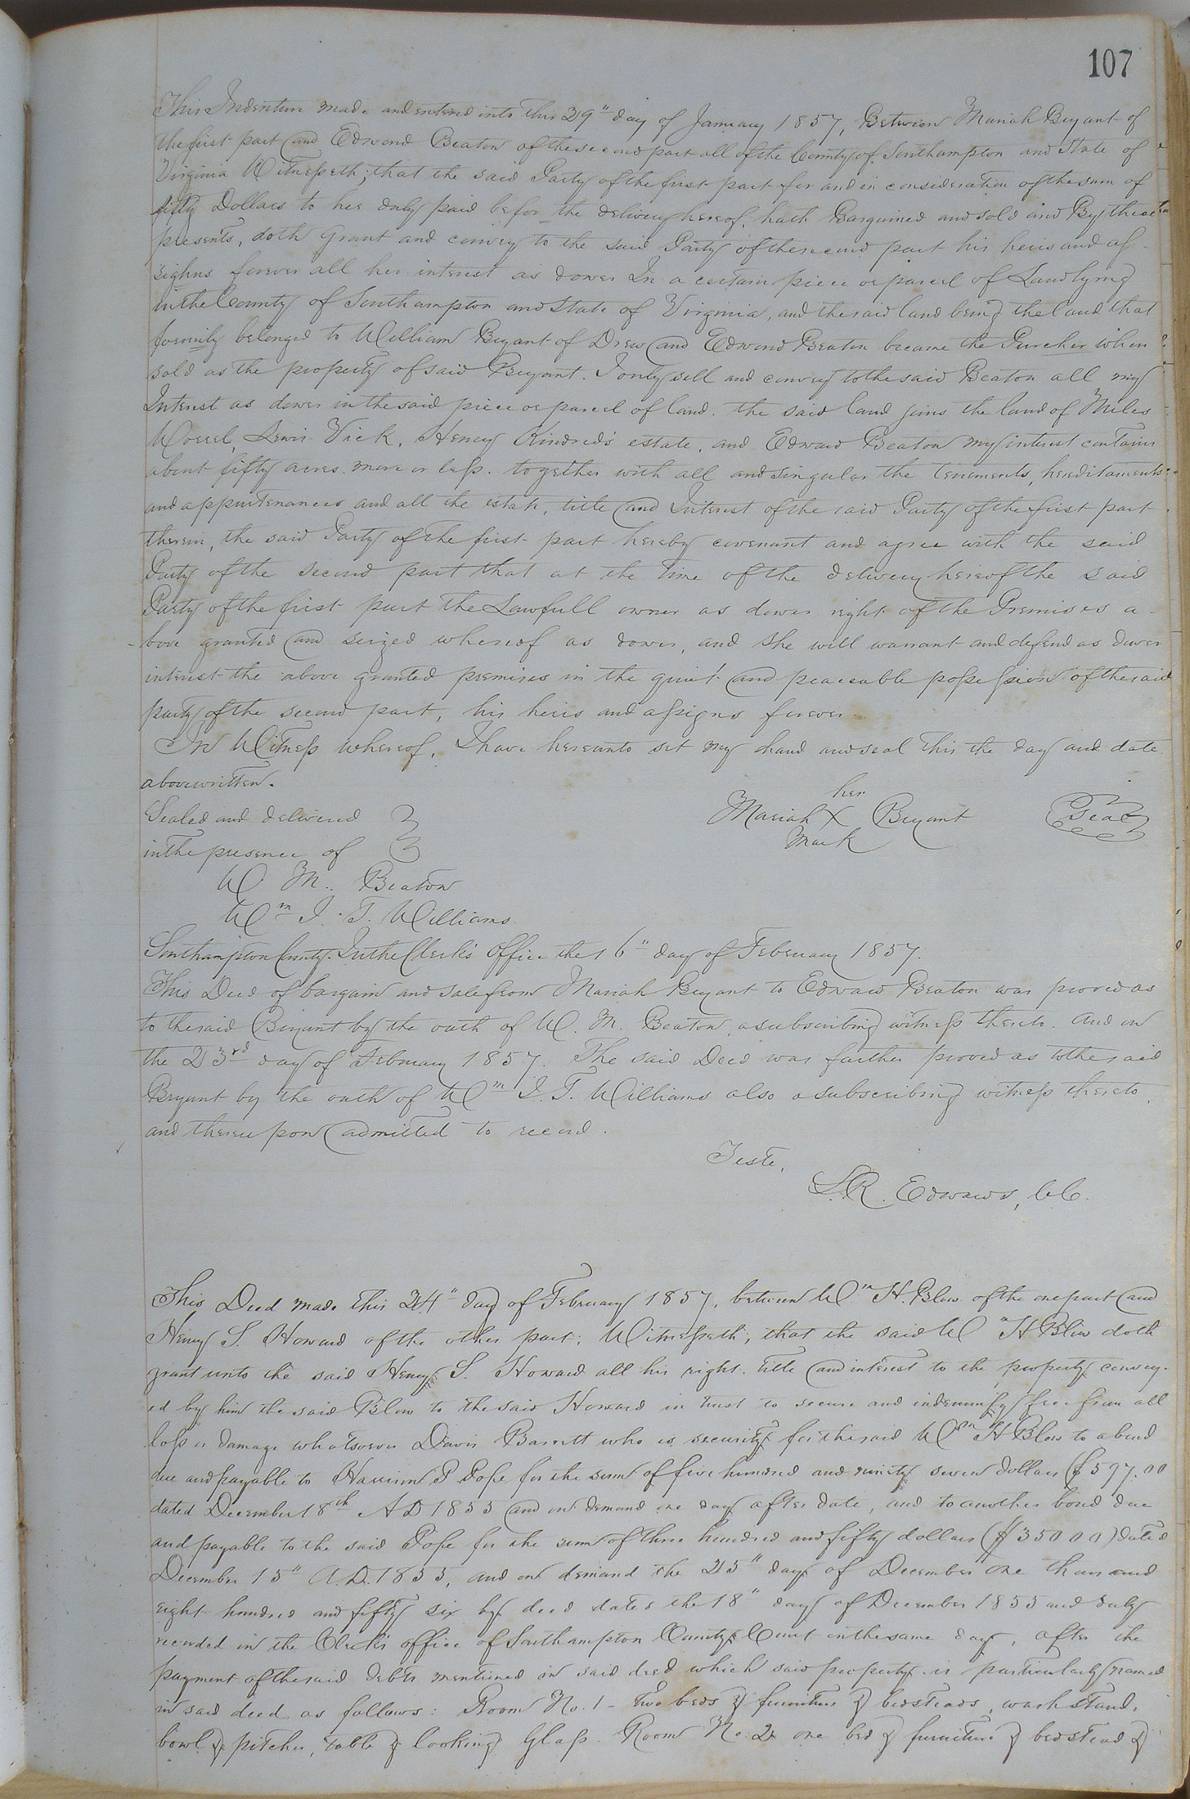 107
This Indenture made and entered into this 29" day of January 1857, Between Mariah Bryant of
the first part and Edward Beaton of the second part all of the County of Southampton and State of
Virginia Witnesseth; that the said Party of the first part for and in consideration of the sum of
fifty Dollars to her duly paid befor the delivery hereof, hath Bargained and sold and By these
presents, doth grant and convey to the said Party of the second part his heirs and as-
sighns forever all her interest as dower In a certain piece or parcel of Land lying
in the County of Southampton and State of Virginia, and the said land being the land that
formily belonged to William Bryant of Drew and Edward Beaton became the Purcher when
sold as the property of said Bryant. I only sell and convey to the said Beaton all my
Interest as dower in the said piece or parcel of land. the said land joins the land of Miles
Worrel, Lewis Vick, Henry Kindred's estate, and Edward Beaton my interest contains
about fifty acres more or less. together with all and singular the tenements, hereditaments
and appurtenances and all the estate, title and Interest of the said Party of the first part
therein, the said Party of the first part hereby covenant and agree with the said
Party of the second part that at the time of the delivery hereof the said
Party of the first part the Lawfull owner as dower right of the Premises a-
bove granted and seized whereof as dower, and she will warrant and defend as dower
interest the above granted premises in the quiet and peaceable possession of the said
party of the second part, his heirs and assigns forever
In Witness whereof, I have hereunto set my hand and seal this the day and date
above written.
her
Sealed and delivered Mariah X Bryant Seal
in the presence of Mark
W. M. Beaton
Wm J. T. Williams
Southampton County. In the Clerk's Office the 16" day of February 1857.
This Deed of bargain and sale from Mariah Bryant to Edward Beaton was proved as
to the said Bryant by the oath of W. M. Beaton a subscribing witness thereto. And on
the 23rd day of February 1857. The said Deed was further proved as to the said
Bryant by the oath of Wm J. T. Williams also a subscribing witness thereto,
and thereupon admitted to record.
Teste,
L. R. Edwards, C.C.
This Deed made this 24" day of February 1857, between Wm H. Blow of the one part and
Henry S. Howard of the other part; Witnesseth, that the said Wm H Blow doth
grant unto the said Henry S. Howard all his right, title and interest to the property convey-
ed by him the said Blow to the said Howard in trust to secure and indemnify free from all
loss or damage whatsoever Davis Barrett who is security for the said Wm H Blow to a bond
due and payable to Harrison P Pope for the sum of five hundred and ninety seven dollars ($597.00
dated December 18th A D 1855 and on demand one day after date, and to another bond due
and payable to the said Pope for the sum of three hundred and fifty dollars ($350 00) dated
December 15" A.D. 1855, and on demand the 25" day of December one thousand
eight hundred and fifty six by deed dated the 18" day of December 1855 and duly
recorded in the Clerk's office of Southampton County Court in the same day, after the
payment of the said debts mentioned in said deed which said property is particularly named
in said deed as follows: Room No. 1 - Two beds & furniture & bedsteads, wash stand,
bowl & pitcher, table & looking Glass. Room No. 2 one bed & furniture & bedstead &